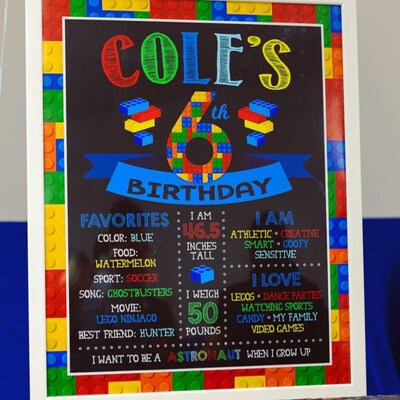 COLE'S
6th
BIRTHDAY
FAVORITES
COLOR: BLUE
FOOD:
WATERMELON
SPORT: SOCCER
SONG: GHOSTBUSTERS
MOVIE:
LEGO NINJAGO
BEST FRIEND: HUNTER
I AM
46.5
INCHES
TALL
I WEIGH
50
POUNDS
I AM
ATHLETIC • CREATIVE
SMART • GOOFY
SENSITIVE
I LOVE
LEGOS • DANCE PARTIES
WATCHING SPORTS
CANDY • MY FAMILY
VIDEO GAMES
I WANT TO BE A ASTRONAUT WHEN I GROW UP